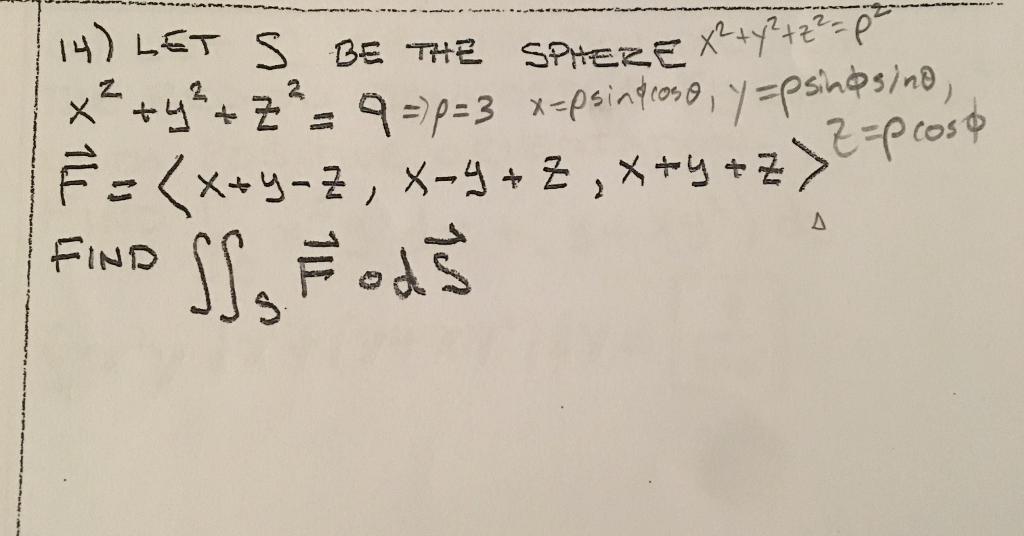 14) LET S BE THE SPHERE x²+y²+z²=ρ²
x²+y²+z² = 9 => ρ=3 x=ρsinϕcosθ, y=ρsinϕsinθ,
z=ρcosϕ
F⃗ = ⟨x+y-z, x-y+z, x+y+z⟩
FIND ∬ₛ F⃗ ∘ dS⃗